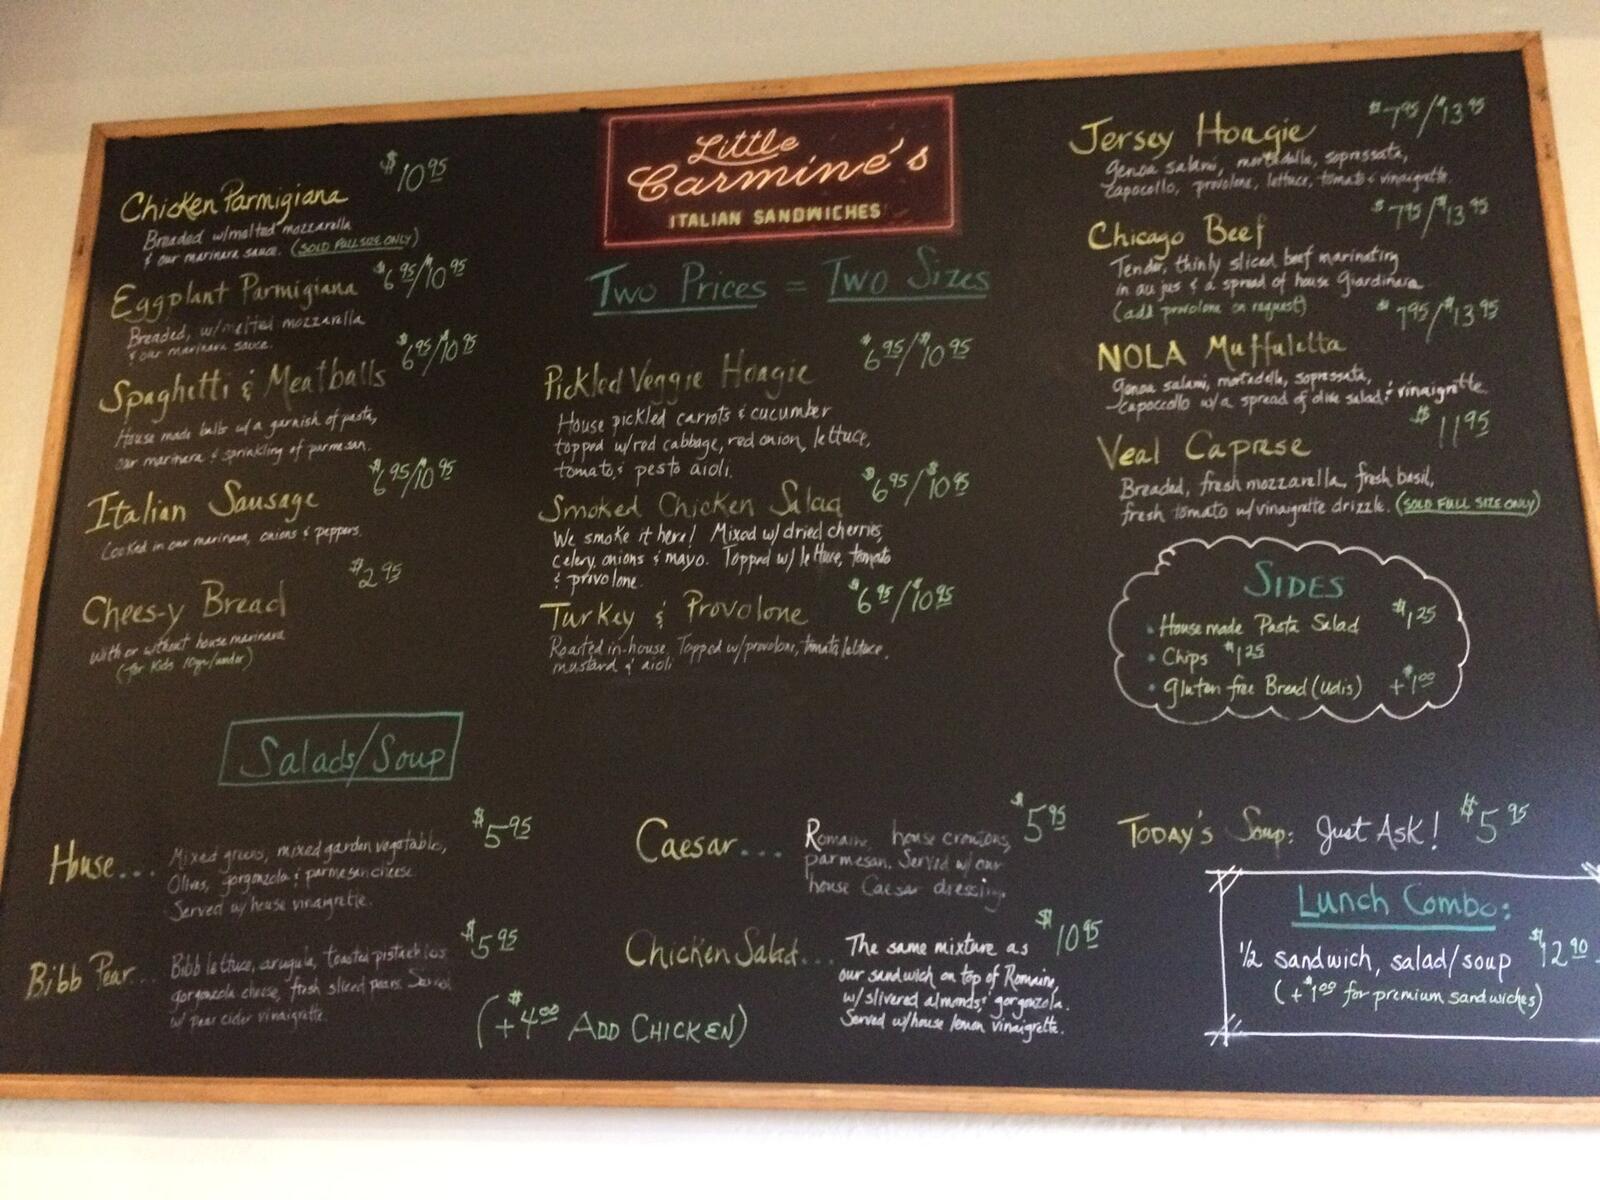 Little
Carmine's
ITALIAN SANDWICHES
Two Prices = Two Sizes
Chicken Parmigiana $10.95
Breaded w/melted mozzarella
& our marinara sauce. (SOLD FULL SIZE ONLY)
Eggplant Parmigiana $6.95/$10.95
Breaded, w/melted mozzarella
& our marinara sauce.
Spaghetti & Meatballs $6.95/$10.95
House made balls w/a garnish of pasta,
our marinara & sprinkling of parmesan.
Italian Sausage $6.95/$10.95
Cooked in our marinara, onions & peppers.
Chees-y Bread $2.95
with or without house marinara
(for Kids 10yrs/under)
Pickled Veggie Hoagie $6.95/$10.95
House pickled carrots & cucumber
topped w/red cabbage, red onion, lettuce,
tomato & pesto aioli.
Smoked Chicken Salad $6.95/$10.95
We smoke it here! Mixed w/dried cherries,
celery, onions & mayo. Topped w/lettuce, tomato
& provolone.
Turkey & Provolone $6.95/$10.95
Roasted in-house. Topped w/provolone, tomato, lettuce,
mustard & aioli
Jersey Hoagie $7.95/$13.95
Genoa salami, mortadella, sopressata,
capocollo, provolone, lettuce, tomato & vinaigrette.
Chicago Beef $7.95/$13.95
Tender, thinly sliced beef marinating
in au jus & a spread of house Giardinara
(add provolone on request)
NOLA Muffuletta $7.95/$13.95
Genoa salami, mortadella, sopressata,
capoccollo w/a spread of olive salad & vinaigrette.
Veal Caprese $11.95
Breaded, fresh mozzarella, fresh basil,
fresh tomato w/vinaigrette drizzle. (SOLD FULL SIZE ONLY)
SIDES
• House made Pasta Salad $1.25
• Chips $1.25
• Gluten free Bread (Udis) +$1.00
Salads/Soup
House... $5.95
Mixed greens, mixed garden vegetables,
Olives, gorgonzola & parmesan cheese.
Served w/ house vinaigrette.
Bibb Pear... $5.95
Bibb lettuce, arugula, toasted pistachios
gorgonzola cheese, fresh sliced pears. Served
w/ pear cider vinaigrette.
(+$4.00 ADD CHICKEN)
Caesar... $5.95
Romaine, house croutons,
parmesan. Served w/ our
house Caesar dressing.
Chicken Salad... $10.95
The same mixture as
our sandwich on top of Romaine,
w/slivered almonds & gorgonzola.
Served w/house lemon vinaigrette.
TODAY'S Soup: Just ASK! $5.95
Lunch Combo:
1/2 sandwich, salad/soup $12.90
(+$1.00 for premium sandwiches)